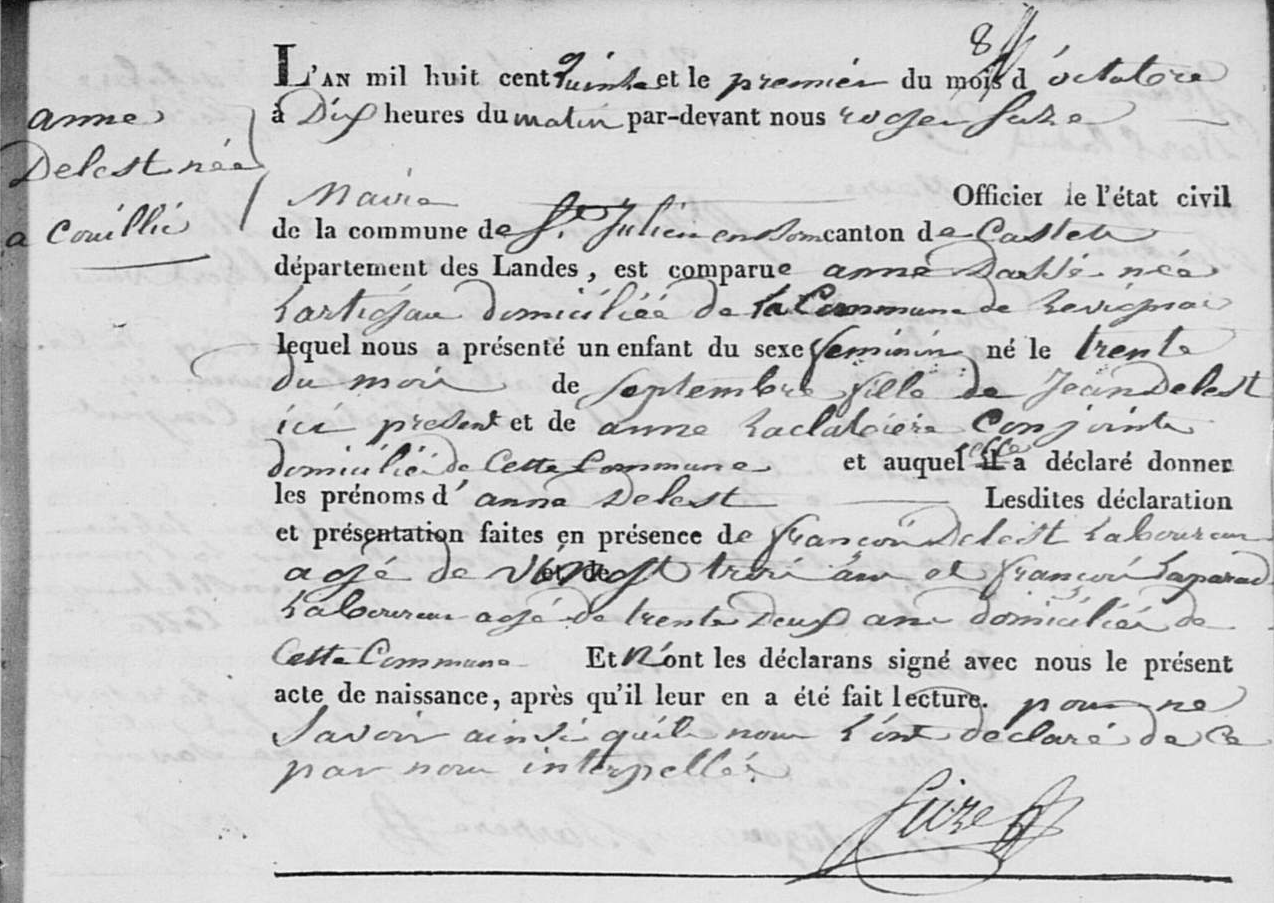 8
L'AN mil huit cent quinze et le premier du mois d'octobre
à Dix heures du matin par-devant nous roger
anne
Delest née
a Couillié
Maire Officier de l'état civil
de la commune de St. Julien en Born canton de Castets
département des Landes, est comparue anne née
Lartigau domiciliée de la Commune de Levignac
lequel nous a présenté un enfant du sexe feminin né le trente
du mois de septembre fille de Jean Delest
ici present et de anne Conjointe
domicilié de Cette Commune et auquel elle a déclaré donner
les prénoms d' anne Delest Lesdites déclaration
et présentation faites en présence de françois Delest Laboureur
agé de Vingt trois ans et françois
Laboureur agé de trente Deux ans domiciliés de
Cette Commune Et N'ont les déclarans signé avec nous le présent
acte de naissance, après qu'il leur en a été fait lecture. pour ne
Savoir ainsi quils nous l'ont déclaré de ce
par nous interpellés